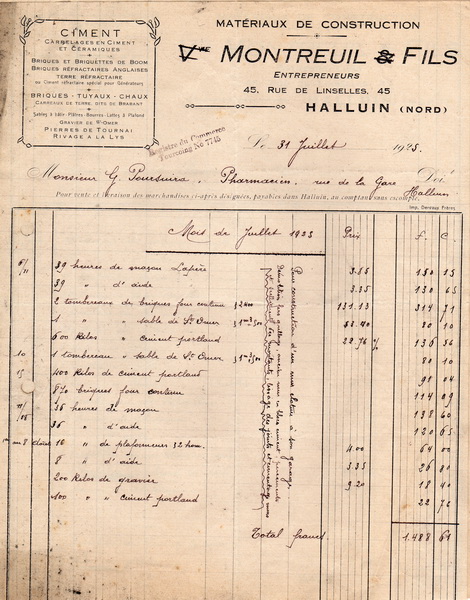 CIMENT
CARRELAGES EN CIMENT
ET CÉRAMIQUES
BRIQUES ET BRIQUETTES DE BOOM
BRIQUES RÉFRACTAIRES ANGLAISES
TERRE RÉFRACTAIRE
ou Ciment réfractaire spécial pour Générateurs
BRIQUES - TUYAUX - CHAUX
CARREAUX DE TERRE, DITS DE BRABANT
Sables à bâtir - Plâtres - Bourres - Lattes à Plafond
GRAVIER DE St OMER
PIERRES DE TOURNAI
RIVAGE A LA LYS
MATÉRIAUX DE CONSTRUCTION
Vve MONTREUIL & FILS
ENTREPRENEURS
45, RUE DE LINSELLES, 45
HALLUIN (NORD)
Registre du Commerce
Tourcoing No 7745
Le 31 Juillet 1925.
Monsieur G. Pharmacien, rue de la Gare Doit
Halluin
Pour vente et livraison des marchandises ci-après désignées, payables dans Halluin, au comptant sous escompte.
Imp. Demeus Frères
Mois de Juillet 1925 Prix F. C.
39 heures de maçon 3.85 150 15
39 " d'aide 3.35 130 65
2 tombereaux de briques four continu 314 71
1 " " sable de St Omer 80 10
600 Kilos " ciment portland 22.76 % 136 56
10 1 tombereau " sable de St Omer 80 10
15 400 Kilos de ciment portland 91 04
870 briques four continu 114 09
36 heures de maçon 138 60
36 " d'aide 120 65
16 " de plafonneur 4.00 64 00
8 " d'aide 3.35 26 80
200 Kilos de gravier 9.20 18 40
100 " " ciment portland 22 76
Pour construction d'un mur
Total francs 1.488 61